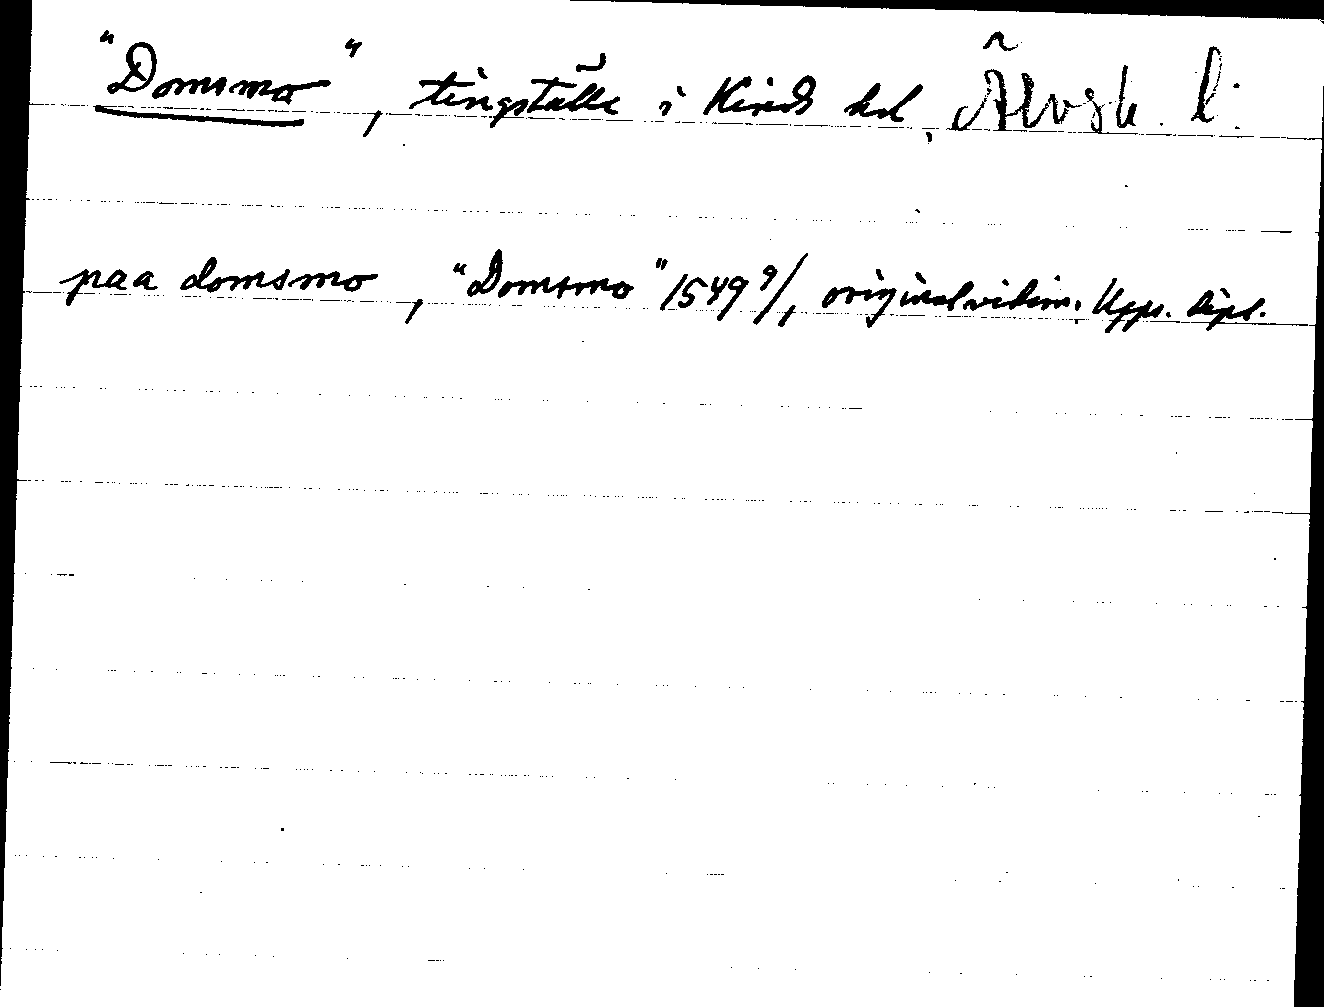 "Domsmo", tingställe i Kinds hd, Älvsb. l:
paa domsmo, "Domsmo" 1549 9/1, originalvidim. Upps. dipl.